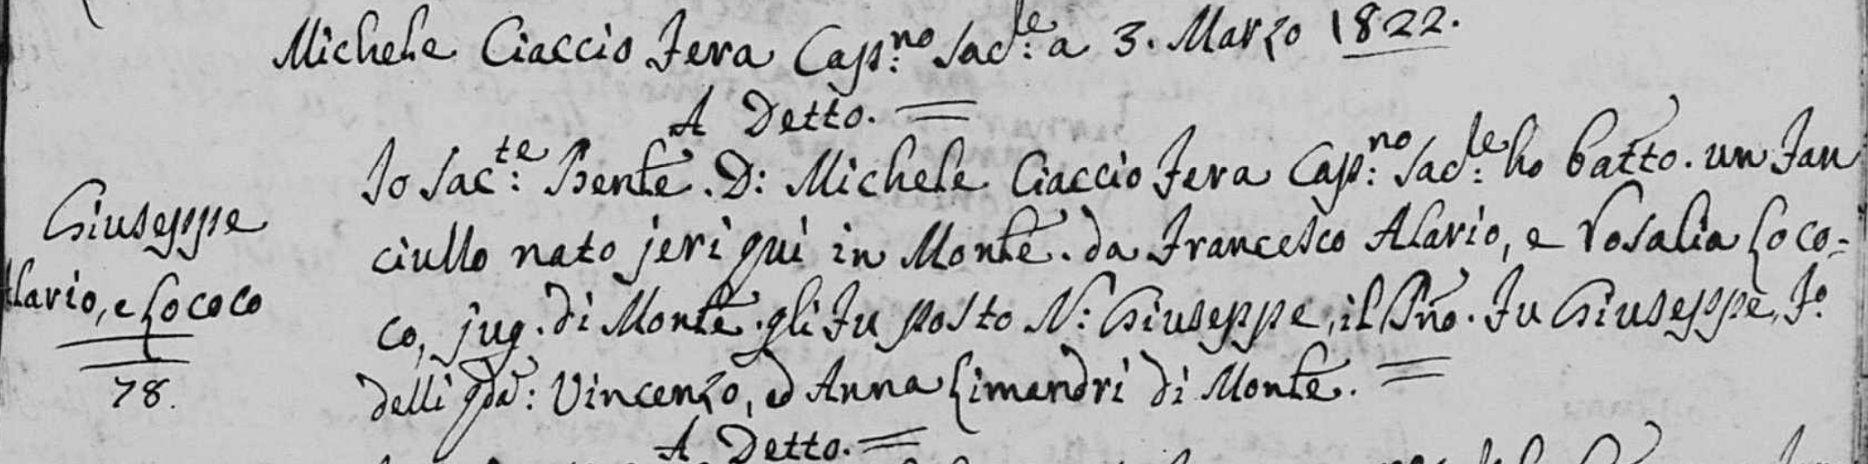 Michele Ciaccio Fera Cap:no Sac:le a 3. Marzo 1822.
A Detto. =
Io Sac:te Bente. D: Michele Ciaccio Fera Cap:no Sac:le ho batto. un fan
Giuseppe
ciullo nato jeri qui in Monte. da Francesco Alario, e Rosalia Loco-
Alario, e Lococo
co, jug. di Monte. gli fu posto N: Giuseppe, il Pño. fu Giuseppe, fo.
78.
delli qda: Vincenzo, ed Anna Cimandri di Monte. =
A Detto. =